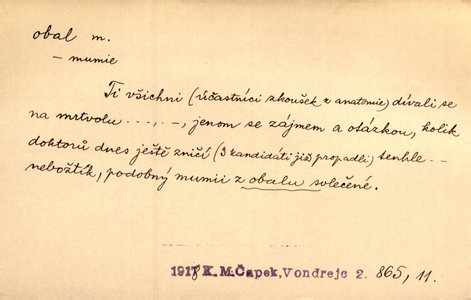 obal m.
– mumie
Ti všichni (účastníci zkoušek z anatomie) dívali se
na mrtvolu ..., –, jenom se zájmem a otázkou, kolik
doktorů dnes ještě zničí (3 kandidáti již propadli) tenhle ..
nebožtík, podobný mumii z obalu svlečené.
1918 K. M. Čapek, Vondrejc 2. 865, 11.